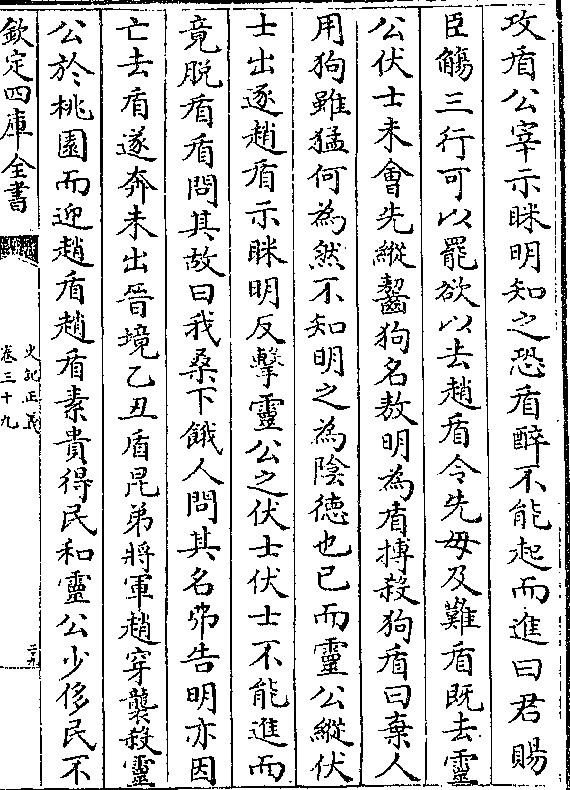 攻盾公宰示眯明知之恐盾醉不能起而進曰君賜
臣觴三行可以罷欲以去趙盾令先毋及難盾既去靈
公伏士未會先縱齧狗名敖明為盾搏殺狗盾曰棄人
用狗雖猛何為然不知明之為陰德也已而靈公縱伏
士出逐趙盾示眯明反擊靈公之伏士伏士不能進而
竟脫盾盾問其故曰我桑下餓人問其名弗告明亦因
亡去盾遂奔未出晉境乙丑盾昆弟將軍趙穿襲殺靈
公於桃園而迎趙盾趙盾素貴得民和靈公少侈民不
欽定四庫全書
史記正義
卷三十九
二九